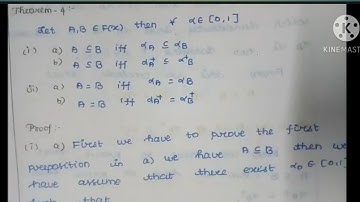 Theorem - 4 :-
Let A, B ∈ F(x) then ∀ α ∈ [0,1]
(i) a) A ⊆ B iff αA ⊆ αB
b) A ⊆ B iff αA⁺ ⊆ αB⁺
(ii) a) A = B iff αA = αB
b) A = B iff αA⁺ = αB⁺
Proof :-
(i) a) First we have to prove the first
preposition in a) we have A ⊆ B then we
have assume that there exist α₀ ∈ [0,1]
such that
MADE WITH
KINEMASTER